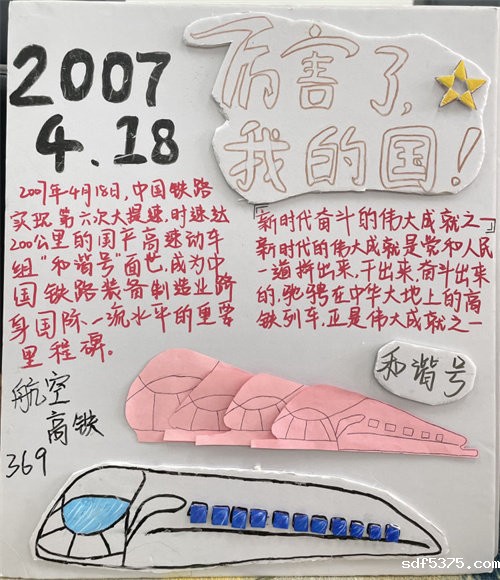 2007
4.18
厉害了,
我的国!
2007年4月18日,中国铁路
实现第六次大提速,时速达
200公里的国产高速动车
组"和谐号"面世,成为中
国铁路装备制造业跻
身国际一流水平的重要
里程碑。
新时代奋斗的伟大成就之一
新时代的伟大成就是党和人民
一道拼出来,干出来,奋斗出来
的,驰骋在中华大地上的高
铁列车,正是伟大成就之一
和谐号
航空
高铁
369
sdf5375.com